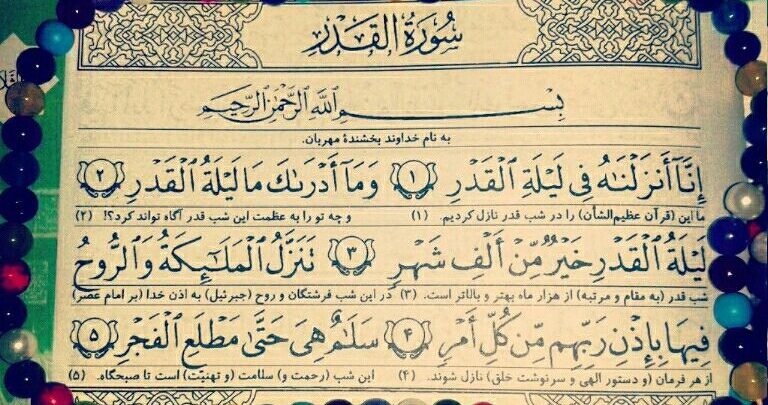 سُورَةُ القَدْرِ
بِسْمِ اللَّهِ الرَّحْمَٰنِ الرَّحِيمِ
به نام خداوند بخشندهٔ مهربان.
إِنَّآ أَنزَلْنَٰهُ فِى لَيْلَةِ ٱلْقَدْرِ ١ وَمَآ أَدْرَىٰكَ مَا لَيْلَةُ ٱلْقَدْرِ ٢
ما این (قرآن عظیم‌الشأن) را در شب قدر نازل کردیم. (۱) و چه تو را به عظمت این شب قدر آگاه تواند کرد؟! (۲)
لَيْلَةُ ٱلْقَدْرِ خَيْرٌ مِّنْ أَلْفِ شَهْرٍ ٣ تَنَزَّلُ ٱلْمَلَٰٓئِكَةُ وَٱلرُّوحُ
شب قدر (به مقام و مرتبه) از هزار ماه بهتر و بالاتر است. (۳) در این شب فرشتگان و روح (جبرئیل) به اذن خدا (بر امام عصر)
فِيهَا بِإِذْنِ رَبِّهِم مِّن كُلِّ أَمْرٍ ٤ سَلَٰمٌ هِىَ حَتَّىٰ مَطْلَعِ ٱلْفَجْرِ ٥
از هر فرمان (و دستور الهی و سرنوشت خلق) نازل شوند. (۴) این شب (رحمت و) سلامت (و تهنیت) است تا صبحگاه. (۵)